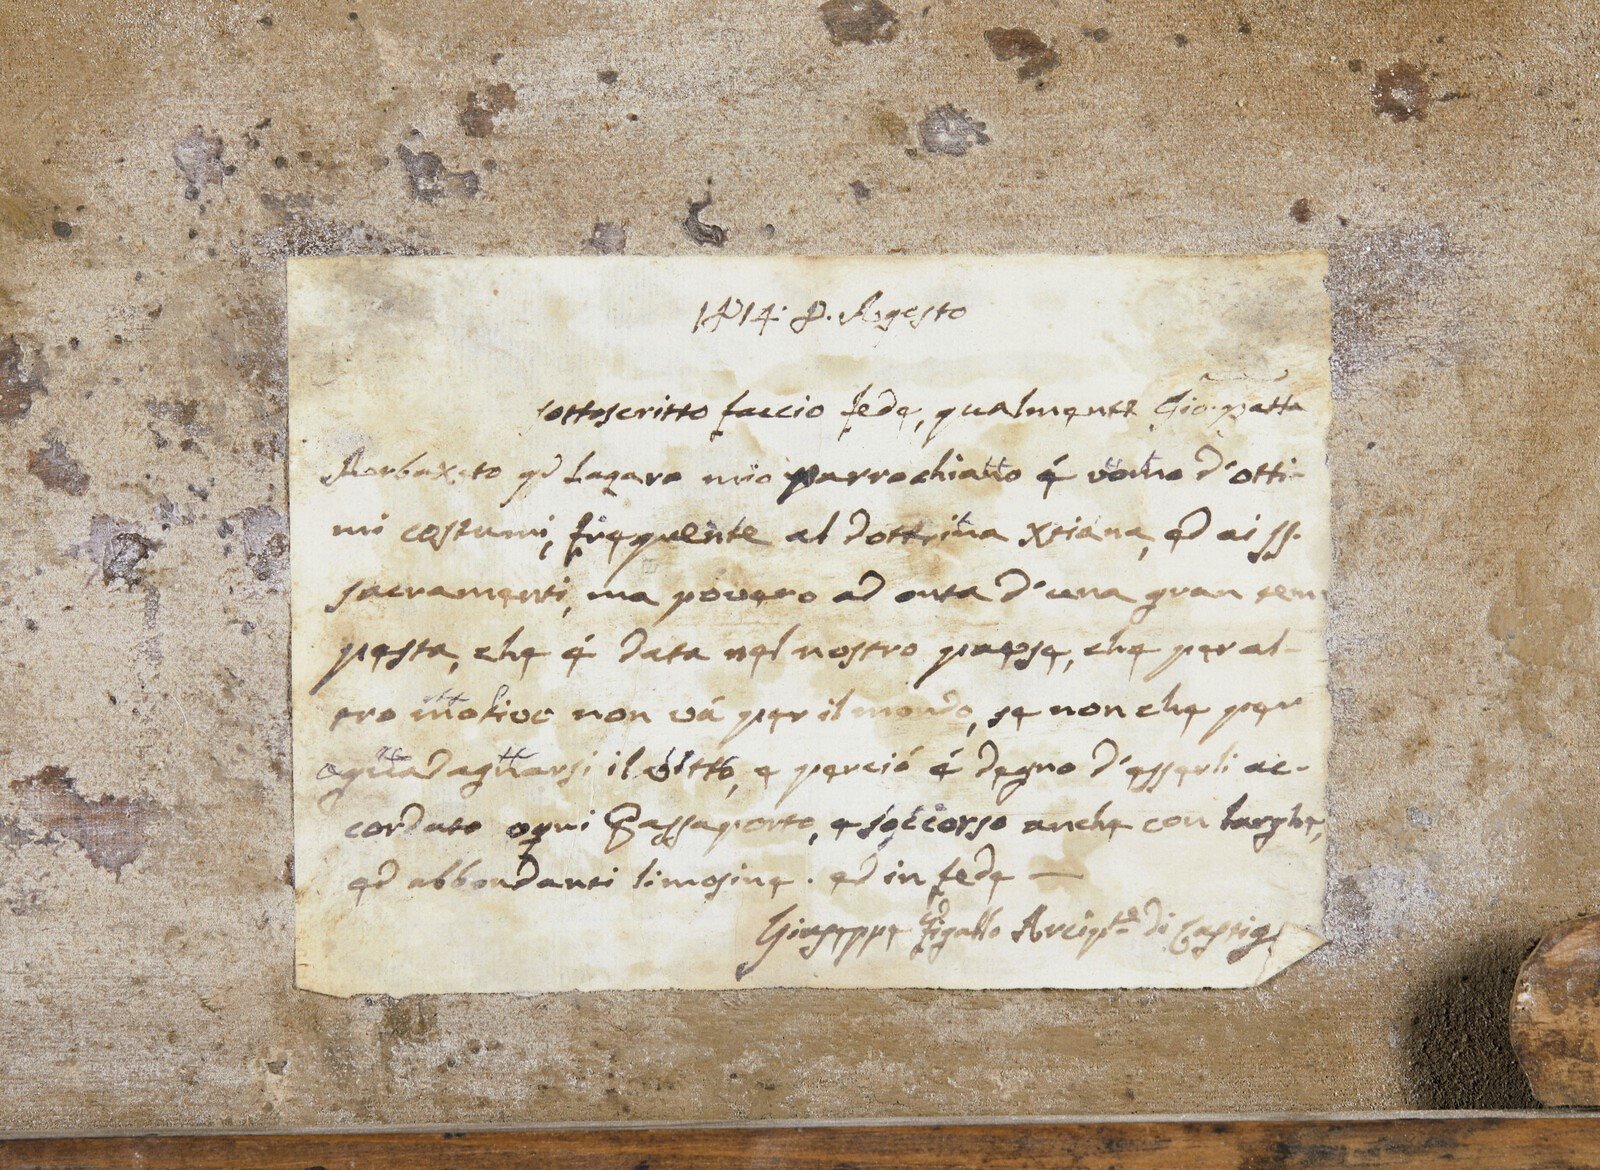 1814: 8. Agosto
sottoscritto faccio fede, qualmente Gio: Batta
qd Lazaro mio parrochiano é uomo d'otti-
mi costumi, frequente al dottrina Xtiana, ed ai SS.
sacramenti, ma povero ad onta d'una gran tem
pesta, che é data nel nostro paese, che per al-
tro motivo non vá per il mondo, se non che per
guadagnarsi il vitto, e perció é degno d'esserli ac-
cordato ogni Passaporto, e soccorso anche con larghe,
ed abbondanti limosine. ed in fede —
Giuseppe Arcipte di